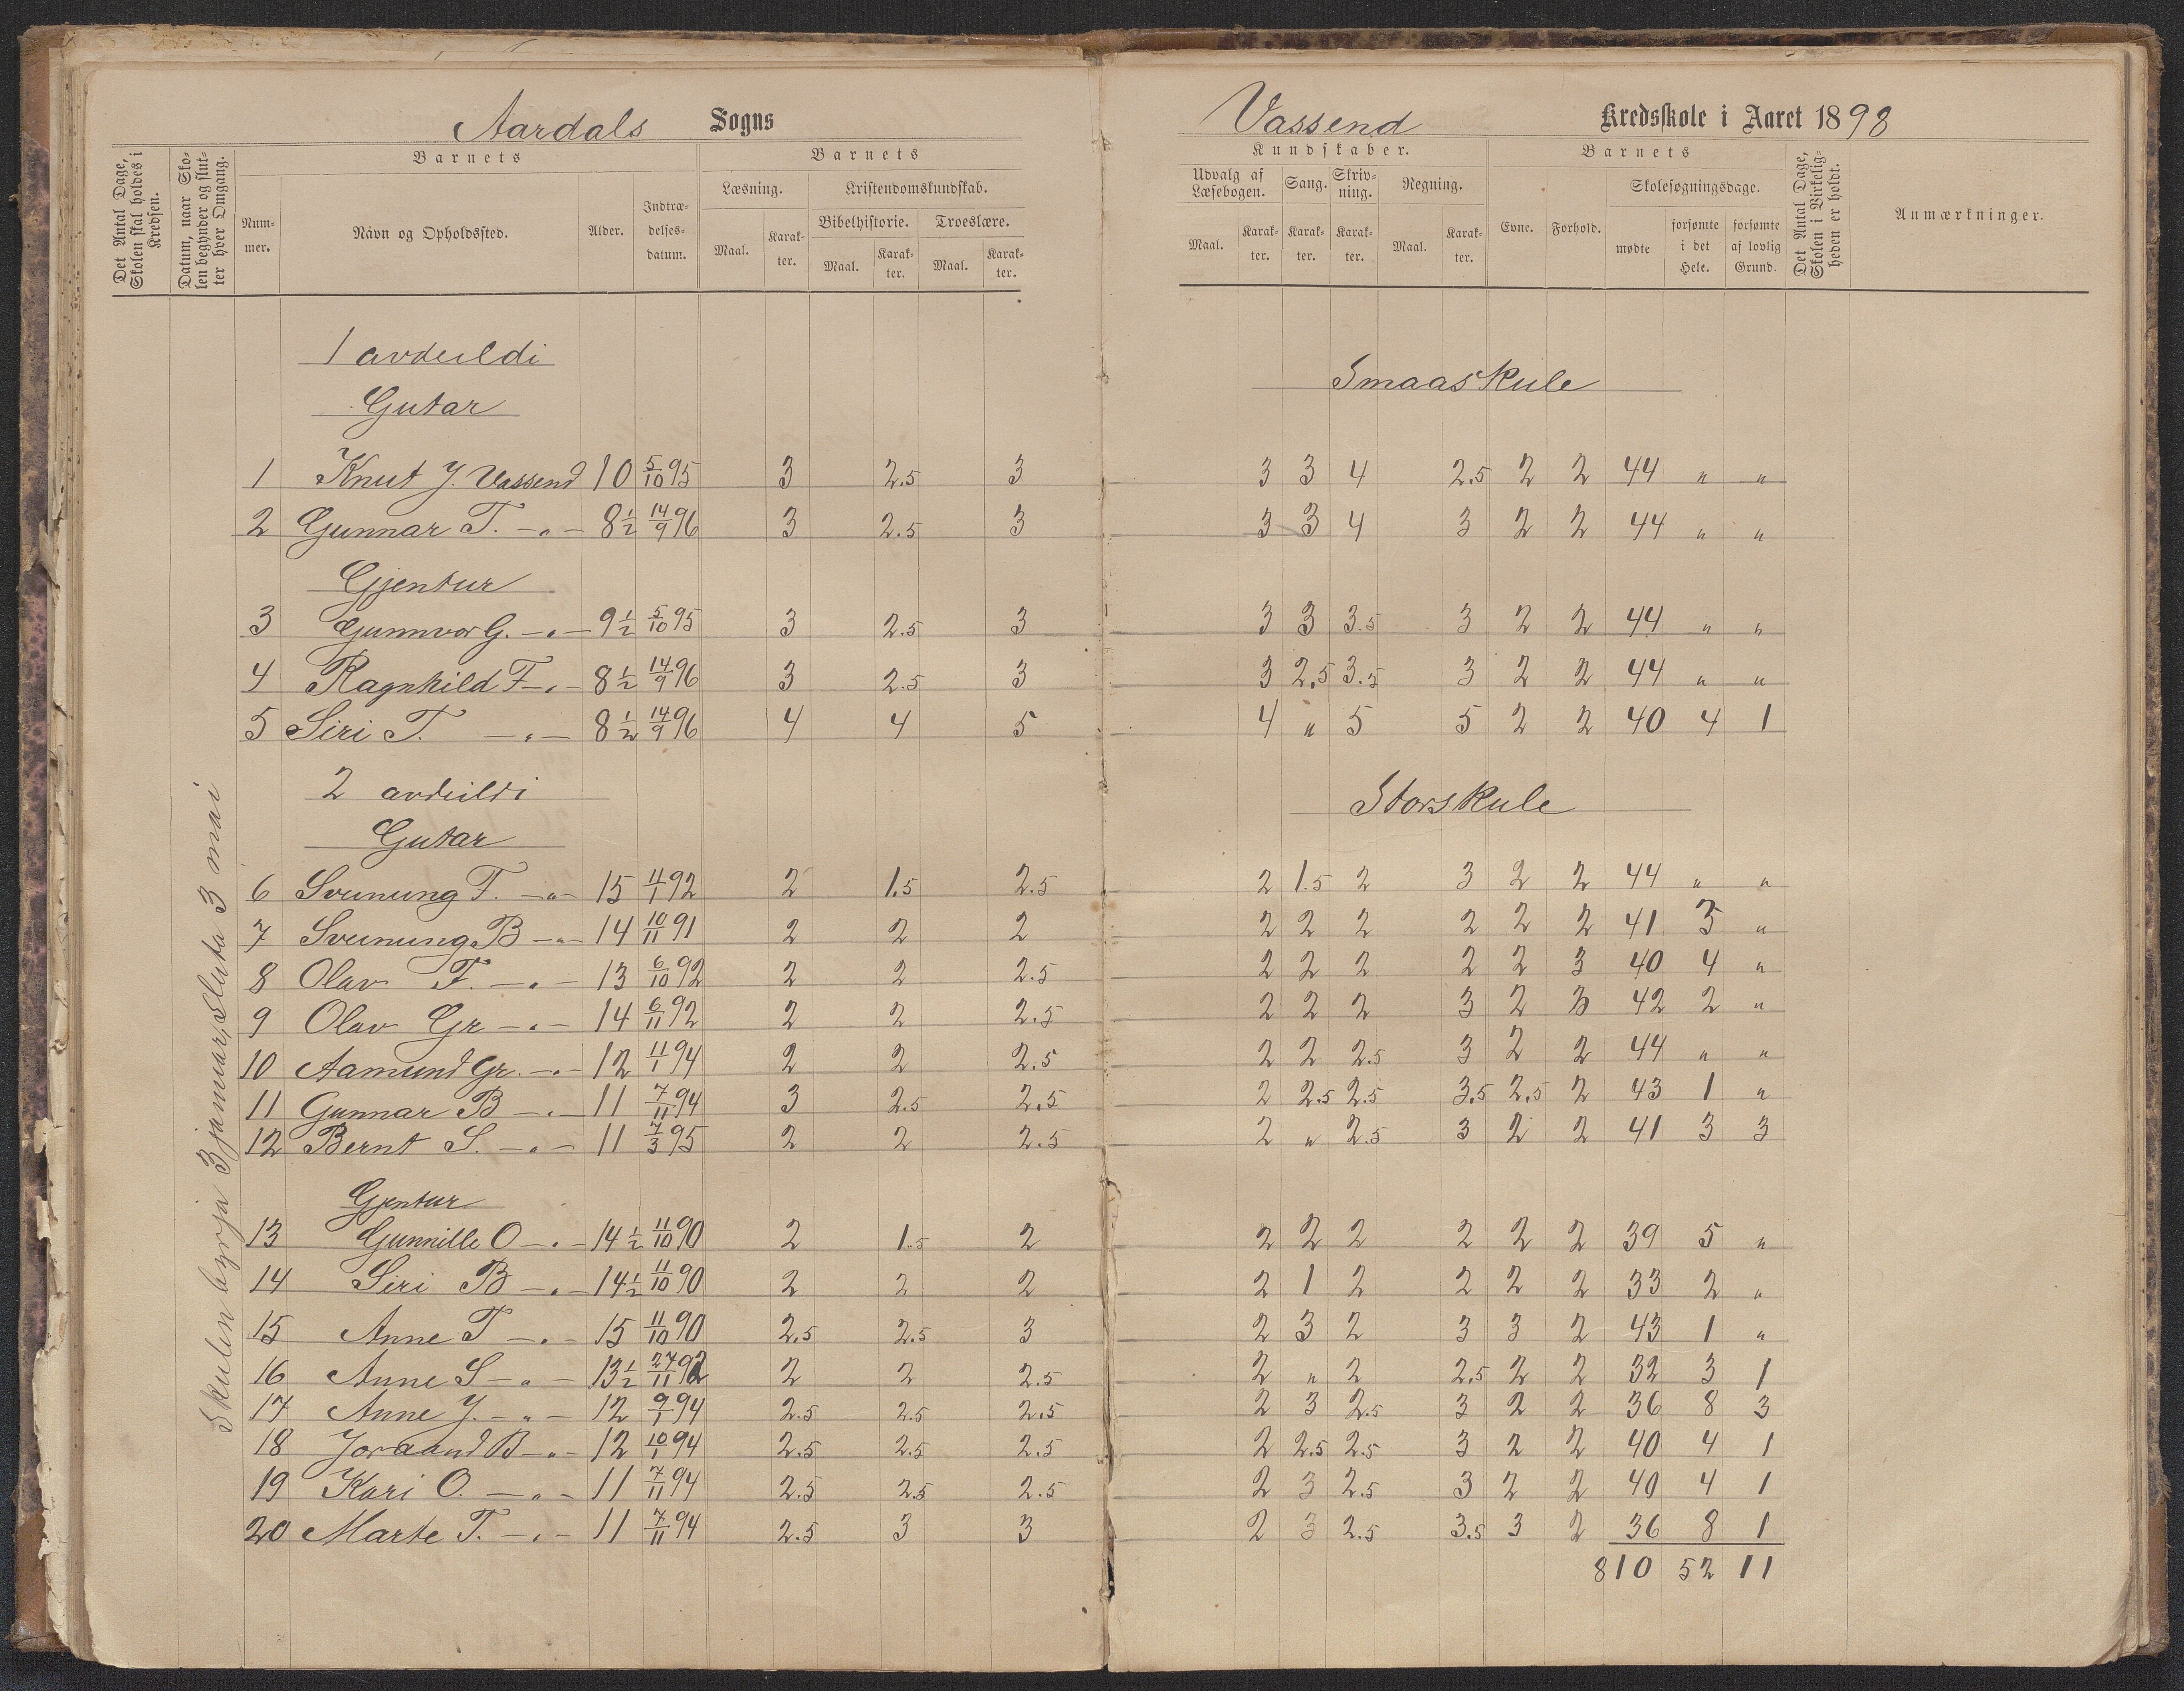 Aardals Sogns
Vassend Kredsskole i Aaret 1898
Det Antal Dage, Skolen skal holdes i Kredsen.
Datum, naar Skolen begynder og slutter hver Omgang.
Barnets
Nummer.
Navn og Opholdssted.
Alder.
Indtrædelsesdatum.
Barnets
Læsning.
Maal.
Karakter.
Kristendomskundskab.
Bibelhistorie.
Maal.
Karakter.
Troeslære.
Maal.
Karakter.
Kundskaber.
Udvalg af Læsebogen.
Maal.
Karakter.
Sang.
Karakter.
Skrivning.
Karakter.
Regning.
Maal.
Karakter.
Barnets
Evne.
Forhold.
Skolesøgningsdage.
mødte
forsømte i det Hele.
forsømte af lovlig Grund.
Det Antal Dage, Skolen i Virkeligheden er holdt.
Anmærkninger.
Skulen byrja 3 januar, sluta 3 mai
1 avdeildi
Smaaskule
Gutar
1 Knut J. Vassend 10 5/10 95 3 2.5 3 3 3 4 2.5 2 2 44 " "
2 Gunnar T. -"- 8 1/2 14/9 96 3 2.5 3 3 3 4 3 2 2 44 " "
Gjentur
3 Gunnvor G. -"- 9 1/2 5/10 95 3 2.5 3 3 3 3.5 3 2 2 44 " "
4 Ragnhild F -"- 8 1/2 14/9 96 3 2.5 3 3 2.5 3.5 3 2 2 44 " "
5 Siri T. -"- 8 1/2 14/9 96 4 4 5 4 " 5 5 2 2 40 4 1
2 avdeildi
Storskule
Gutar
6 Sveinung F. -"- 15 11/1 92 2 1.5 2.5 2 1.5 2 3 2 2 44 " "
7 Sveinung B -"- 14 10/11 91 2 2 2 2 2 2 2 2 2 41 3 "
8 Olav F. -"- 13 6/10 92 2 2 2.5 2 2 2 2 2 3 40 4 "
9 Olav Gr -"- 14 6/11 92 2 2 2.5 2 2 2 3 2 3 42 2 "
10 Aamund Gr. -"- 12 11/1 94 2 2 2.5 2 2 2.5 3 2 2 44 " "
11 Gunnar B -"- 11 7/11 94 3 2.5 2.5 2 2.5 2.5 3.5 2.5 2 43 1 "
12 Bernt S. -"- 11 7/3 95 2 2 2.5 2 " 2.5 3 2 2 41 3 3
Gjentur
13 Gunnille O -"- 14 1/2 11/10 90 2 1.5 2 2 2 2 2 2 2 39 5 "
14 Siri B -"- 14 1/2 11/10 90 2 2 2 2 1 2 2 2 2 33 2 "
15 Anne T -"- 15 11/10 90 2.5 2.5 3 2 3 2 3 3 2 43 1 "
16 Anne S -"- 13 1/2 27/11 92 2 2 2.5 2 " 2 2.5 2 2 32 3 1
17 Anne J. -"- 12 9/1 94 2.5 2.5 2.5 2 3 2.5 3 2 2 36 8 3
18 Joraand B -"- 12 10/1 94 2.5 2.5 2.5 2 2.5 2.5 3 2 2 40 4 1
19 Kari O. -"- 11 7/11 94 2.5 2.5 2.5 2 3 2.5 3 2 2 40 4 1
20 Marte T. -"- 11 7/11 94 2.5 3 3 2 3 2.5 3.5 3 2 36 8 1
810 52 11